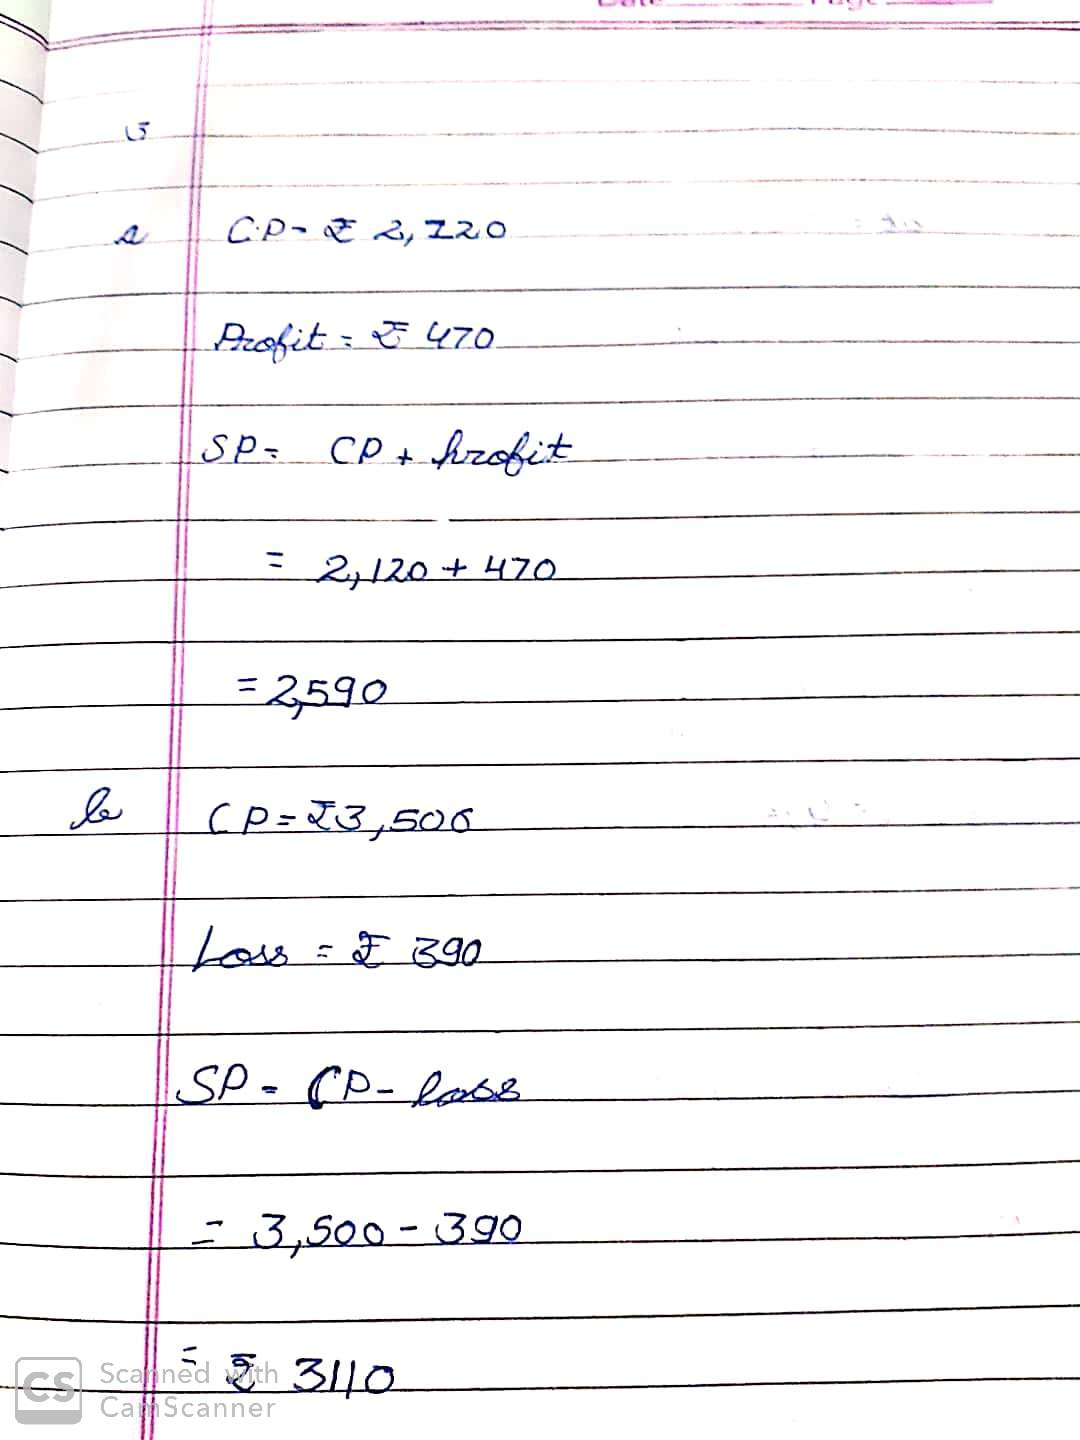 5
a CP = ₹ 2,120
Profit = ₹ 470
SP = CP + profit
= 2,120 + 470
= 2,590
b CP = ₹3,500
Loss = ₹ 390
SP = CP - loss
= 3,500 - 390
= ₹ 3110
CS Scanned with
CamScanner